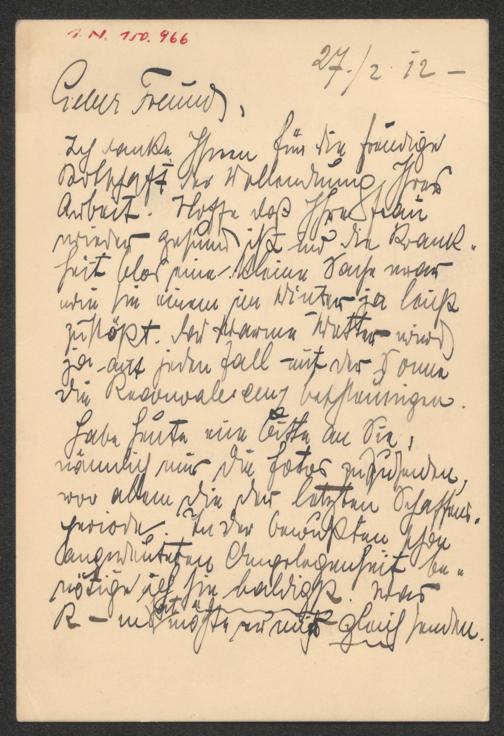 I. N. 150.966
27./2. 12 –
Lieber Freund,
Ich danke Ihnen für die freudige
Botschaft der Vollendung Ihrer
Arbeit. Hoffe daß Ihre Frau
wieder gesund ist und die Krank-
heit blos eine kleine Sache war
wie sie einem im Winter ja leicht
zustößt. Das warme Wetter wird
ja auf jeden Fall mit der Sonne
die Reconvalescenz beschleunigen.
Habe heute eine Bitte an Sie,
nämlich mir die Fotos zuzusenden,
vor allem die der letzten Schaffens-
periode. In der bewußten schon
angedeuteten Angelegenheit be-
nötige ich sie baldigst. Was
R – hat möchte er mir gleich senden.